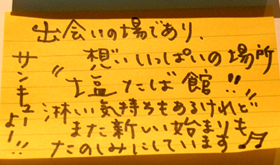 出会いの場であり、
想いいっぱいの場所
"塩たば館"!!
淋い気持ちもあるけれど
また新しい始まりも
たのしみにしています♬
サンキューよー!!